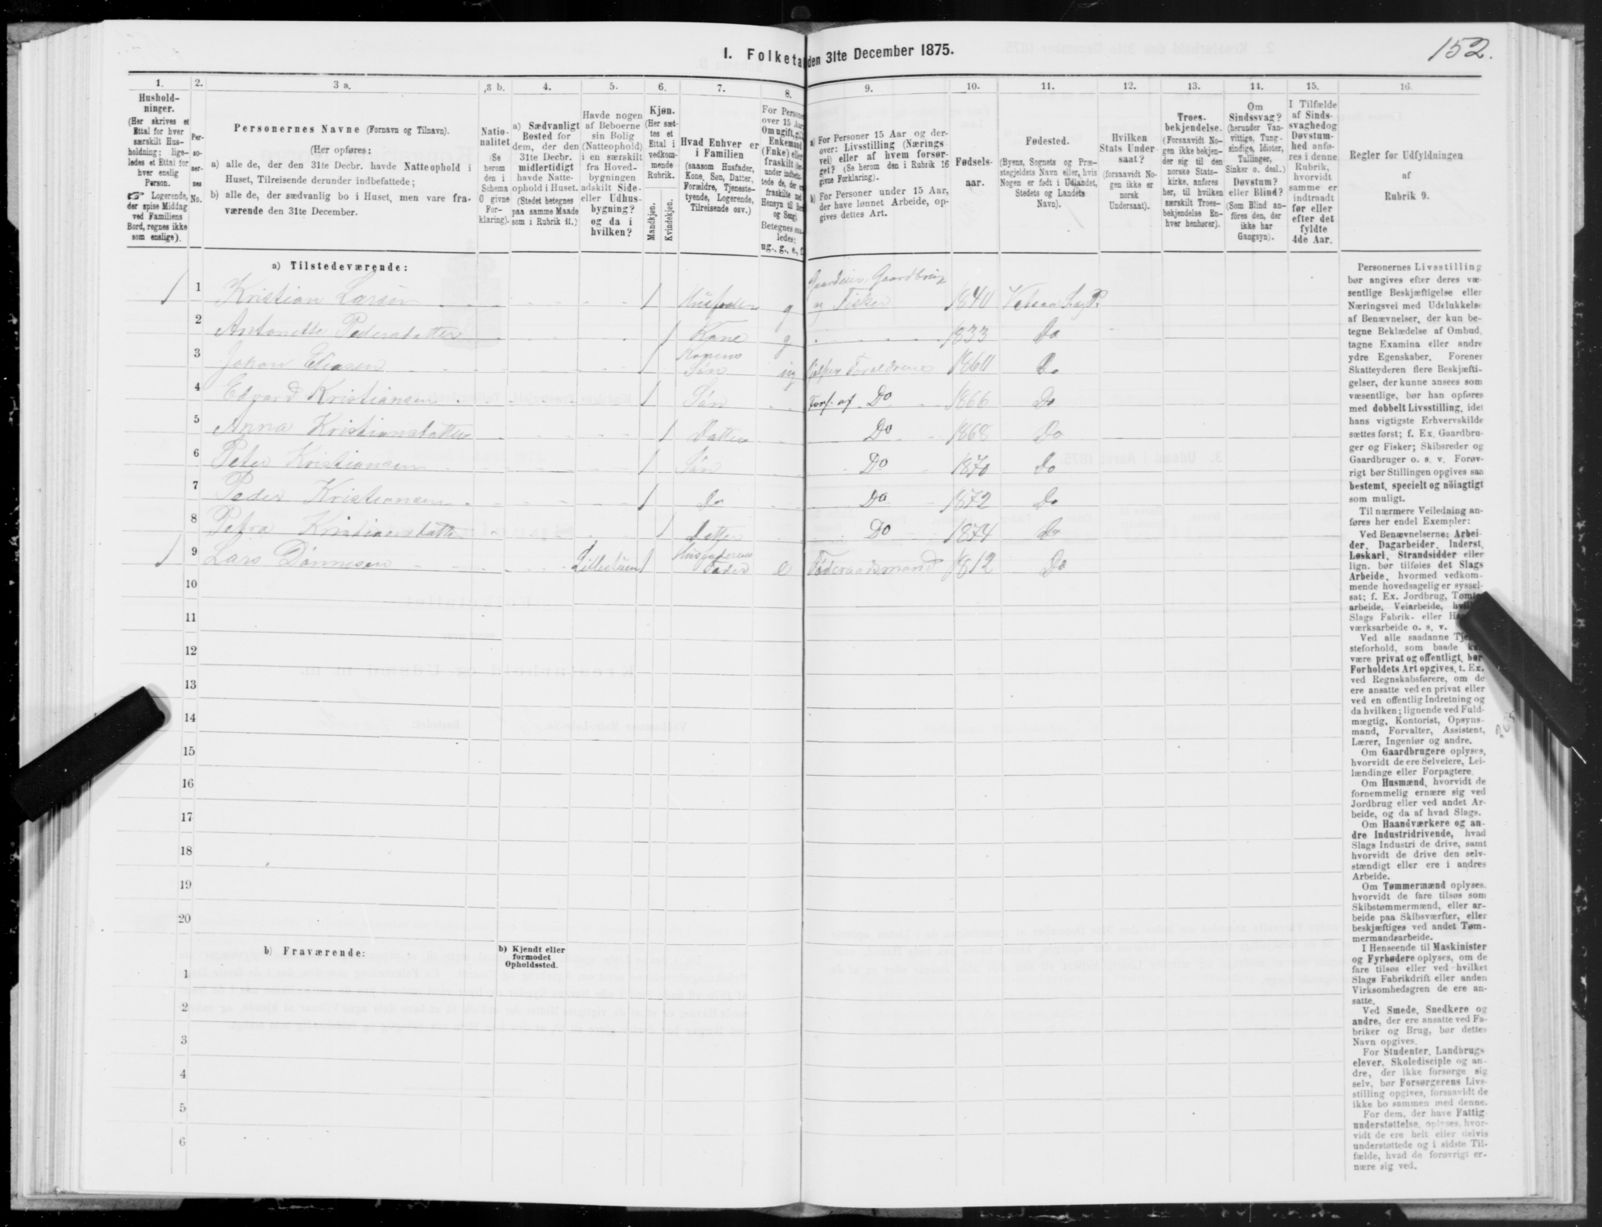 152.
I. Folketa den 31te December 1875.
1. 2. 3 a. 3 b. 4. 5. 6. 7. 8. 9. 10. 11. 12. 13. 14. 15. 16.
Hushold-
ninger.
(Her skrives et
Ettal for hver
særskilt Hus-
holdning; lige-
ledes et Ettal for
hver enslig
Person.
☞ Logerende,
der spise Middag
ved Familiens
Bord, regnes ikke
som enslige).
Per-
so-
ner-
nes
No.
Personernes Navne (Fornavn og Tilnavn).
(Her opføres:
a) alle de, der den 31te Decbr. havde Natteophold i
Huset, Tilreisende derunder indbefattede;
b) alle de, der sædvanlig bo i Huset, men vare fra-
værende den 31te December.
Natio-
nalitet
(Se
herom
den i
Schema
O givne
For-
klaring).
a) Sædvanligt
Bosted for
dem, der den
31te Decbr.
midlertidigt
havde Natte-
ophold i Huset.
(Stedet betegnes
paa samme Maade
som i Rubrik 11.)
Havde nogen
af Beboerne
sin Bolig
(Natteophold)
i en særskilt
fra Hoved-
bygningen
adskilt Side-
eller Udhus-
bygning?
og da i
hvilken?
Kjøn.
(Her sæt-
tes et
Ettal i
vedkom-
mende
Rubrik.
Mandkjøn.
Kvindekjøn.
Hvad Enhver er
i Familien
(saasom Husfader,
Kone, Søn, Datter,
Forældre, Tjeneste-
tyende, Logerende,
Tilreisende osv.)
For Person
over 15 Aar
Om ugift, gi
Enkemand
(Enke) elle
fraskilt
Betegnes saa-
ledes:
ug., g., e., f.
a) For Personer 15 Aar og der-
over: Livsstilling (Nærings
vei) eller af hvem forsør-
get? (Se herom den i Rubrik 16
givne Forklaring).
b) For Personer under 15 Aar,
der have lønnet Arbeide, op-
gives dettes Art.
Fødsels-
aar.
Fødested.
(Byens, Sognets og Præ-
stegjeldets Navn eller, hvis
Nogen er født i Udlandet,
Stedets og Landets
Navn).
Hvilken
Stats Under
saat?
(forsaavidt No-
gen ikke er
norsk
Undersaat).
Troes-
bekjendelse.
(Forsaavidt No-
gen ikke bekjen-
der sig til den
norske Stats-
kirke, anføres
her, til hvilken
særskilt Troes-
bekjendelse En-
hver henhører).
Om
Sindssvag?
(herunder Van-
vittige, Tung-
sindige, Idioter,
Tullinger,
Sinker o. desl.)
Døvstum?
eller Blind?
(Som Blind an-
føres den, der
ikke har
Gangsyn).
I Tilfælde
af Sinds-
svaghed og
Døvstum-
hed anfø-
res i denne
Rubrik,
hvorvidt
samme er
indtraadt
før eller
efter det
fyldte
4de Aar.
Regler for Udfyldningen
af
Rubrik 9.
a) Tilstedeværende:
1 1 Kristian Larsen 1 Husfader g Gaardeier, Gaardbrug og Fisker 1840 P.
2 Antonette Pedersdatter 1 Kone g 1833 Do
3 Johan 1 Konens Søn ug Forældrene 1860 Do
4 Edvard Kristiansen 1 Søn Fors. af Do 1866 Do
5 Anna Kristiansdatter 1 Datter Do 1868 Do
6 Peter Kristiansen 1 Søn Do 1870 Do
7 Peder Kristiansen 1 Do Do 1872 Do
8 Petra Kristiansdatter 1 Datter Do 1874 Do
1 9 Lars Dønnesen 1 Husfaderens Fader e Føderaadsmand 1812 Do
10
11
12
13
14
15
16
17
18
19
20
b) Fraværende:
b) Kjendt eller
formodet
Opholdssted.
1
2
3
4
5
6
Personernes Livsstilling
bør angives efter deres væ-
sentlige Beskjæftigelse eller
Næringsvei med Udelukkelse
af Benævnelser, der kun be-
tegne Beklædelse af Ombud,
tagne Examina eller andre
ydre Egenskaber. Forener
Skatteyderen flere Beskjæfti-
gelser, der kunne ansees som
væsentlige, bør han opføres
med dobbelt Livsstilling, idet
hans vigtigste Erhvervskilde
sættes først; f. Ex. Gaardbru-
ger og Fisker; Skibsreder og
Gaardbruger o. s. v. Forøv-
rigt bør Stillingen opgives saa
bestemt, specielt og nöiagtigt
som muligt.
Til nærmere Veiledning an-
føres her endel Exempler:
Ved Benævnelserne: Arbei-
der, Dagarbeider, Inderst,
Løskarl, Strandsidder eller
lign. bør tilføies det Slags
Arbeide, hvormed vedkom-
mende hovedsagelig er syssel-
sat; f. Ex. Jordbrug, Tømme
arbeide, Veiarbeide, hvilke
Slags Fabrik- eller
værksarbeide o. s. v.
Ved alle saadanne
steforhold, som baade
være privat og offentligt, bør
Forholdets Art opgives, t. Ex.
ved Regnskabsførere, om de
ere ansatte ved en privat eller
ved en offentlig Indretning og
da hvilken; lignende ved Fuld-
mægtig, Kontorist, Opsyns-
mand, Forvalter, Assistent,
Lærer, Ingeniør og andre.
Om Gaardbrugere oplyses,
hvorvidt de ere Selveiere, Lei-
lændinge eller Forpagtere.
Om Husmænd, hvorvidt de
fornemmelig ernære sig ved
Jordbrug eller ved andet Ar-
beide, og da af hvad Slags.
Om Haandværkere og an-
dre Industridrivende, hvad
Slags Industri de drive, samt
hvorvidt de drive den selv-
stændigt eller ere i andres
Arbeide.
Om Tømmermænd oplyses,
hvorvidt de fare tilsøs som
Skibstømmermænd, eller ar-
beide paa Skibsværfter, eller
beskjæftiges ved andet Tøm-
mermandsarbeide.
I Henseende til Maskinister
og Fyrbødere oplyses, om de
fare tilsøs eller ved hvilket
Slags Fabrikdrift eller anden
Virksomhedsgren de ere an-
satte.
Ved Smede, Snedkere og
andre, der ere ansatte ved Fa-
briker og Brug, bør dettes
Navn opgives.
For Studenter, Landbrugs
elever, Skoledisciple og an-
dre, der ikke forsørge sig
selv, bør Forsørgerens Livs-
stilling opgives, forsaavidt de
ikke bo sammen med denne.
For dem, der have Fattig
understøttelse, oplyses, hvor-
vidt de ere helt eller delvis
understøttede og i sidste Til-
fælde, hvad de forøvrigt er-
nære sig ved.